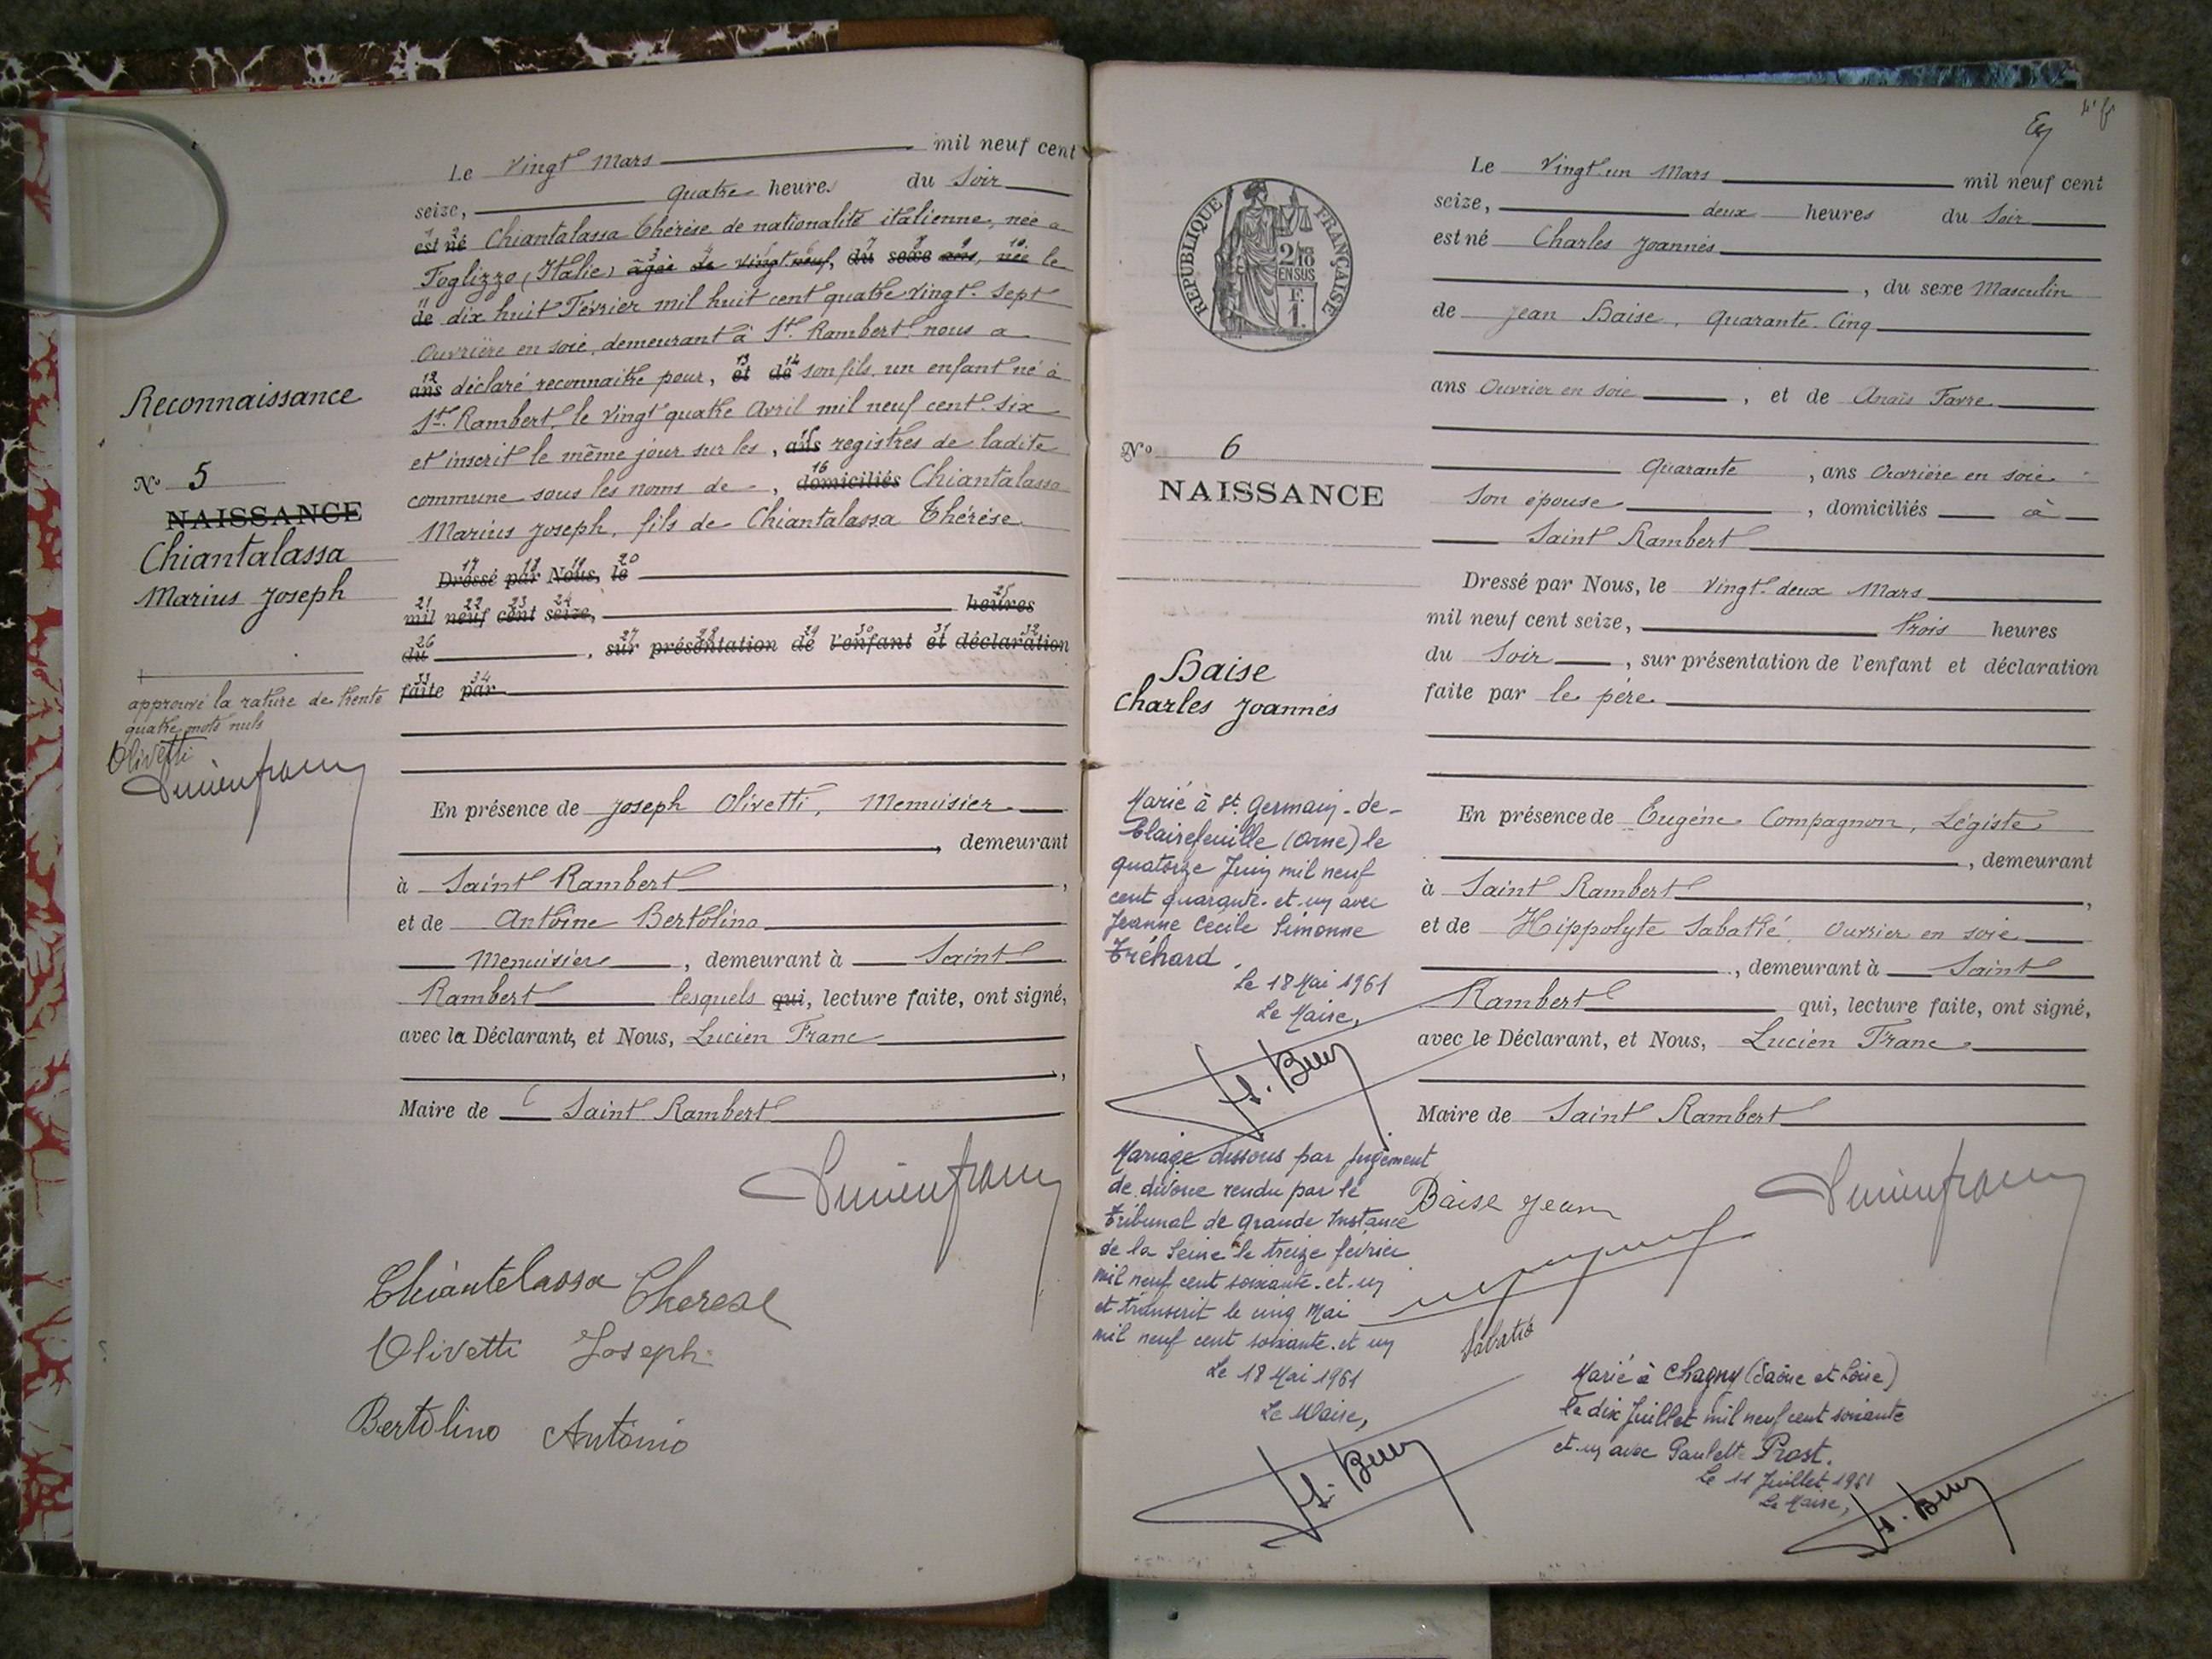 Le Vingt Mars mil neuf cent
seize, quatre heures du Soir
est né Chiantalassa Thérèse de nationalité italienne, née a
Foglizzo (Italie) âgée de vingt neuf, du sexe ans, née le
de dix huit Février mil huit cent quatre vingt-sept
Ouvrière en soie, demeurant à St. Rambert nous a
ans déclaré reconnaitre pour, et de son fils un enfant né à
St. Rambert le vingt quatre Avril mil neuf cent six
et inscrit le même jour sur les, ans registres de ladite
commune sous les noms de, domiciliés Chiantalassa
Marius Joseph, fils de Chiantalassa Thérèse
Dressé par Nous, le
mil neuf cent seize, heures
du , sur présentation de l'enfant et déclaration
faite par
Reconnaissance
No 5
NAISSANCE
Chiantalassa
Marius Joseph
approuvé la rature de trente
quatre mots nuls
Olivetti
Lucien franc
En présence de Joseph Olivetti, Menuisier
, demeurant
à Saint Rambert ,
et de Antoine Bertolino
Menuisier , demeurant à Saint
Rambert lesquels qui, lecture faite, ont signé,
avec la Déclarante, et Nous, Lucien Franc
,
Maire de Saint Rambert
Lucien franc
Chiantelassa Therese
Olivetti Joseph
Bertolino Antonio
RÉPUBLIQUE FRANÇAISE
2/10
EN SUS
F.
1.
Le Vingt-un Mars mil neuf cent
seize, deux heures du Soir
est né Charles Joannès
, du sexe Masculin
de Jean Baise, Quarante-Cinq
ans Ouvrier en soie , et de Anaïs Favre
Quarante , ans Ouvrière en soie
Son épouse , domiciliés à
Saint Rambert
No 6
NAISSANCE
Baise
Charles Joannès
Dressé par Nous, le Vingt-deux Mars
mil neuf cent seize, trois heures
du Soir , sur présentation de l'enfant et déclaration
faite par le père
En présence de Eugène Compagnon, Légiste
, demeurant
à Saint Rambert ,
et de Hippolyte Sabatié, Ouvrier en soie
, demeurant à Saint
Rambert qui, lecture faite, ont signé,
avec le Déclarant, et Nous, Lucien Franc
Maire de Saint Rambert
Marié à St. Germain-de-
Clairefeuille (Orne) le
quatorze Juin mil neuf
cent quarante-et-un avec
Jeanne Cécile Simonne
Tréhard.
Le 18 Mai 1961
Le Maire,
Mariage dissous par jugement
de divorce rendu par le
Tribunal de Grande Instance
de la Seine le treize février
mil neuf cent soixante-et-un
et transcrit le cinq Mai
mil neuf cent soixante-et un
Le 18 Mai 1961
Le Maire,
Baise Jean
Lucien franc
Sabatié
Marié à Chagny (Saône et Loire)
le dix Juillet mil neuf cent soixante
et-un avec Paulette Prost.
Le 11 Juillet 1961
Le Maire,